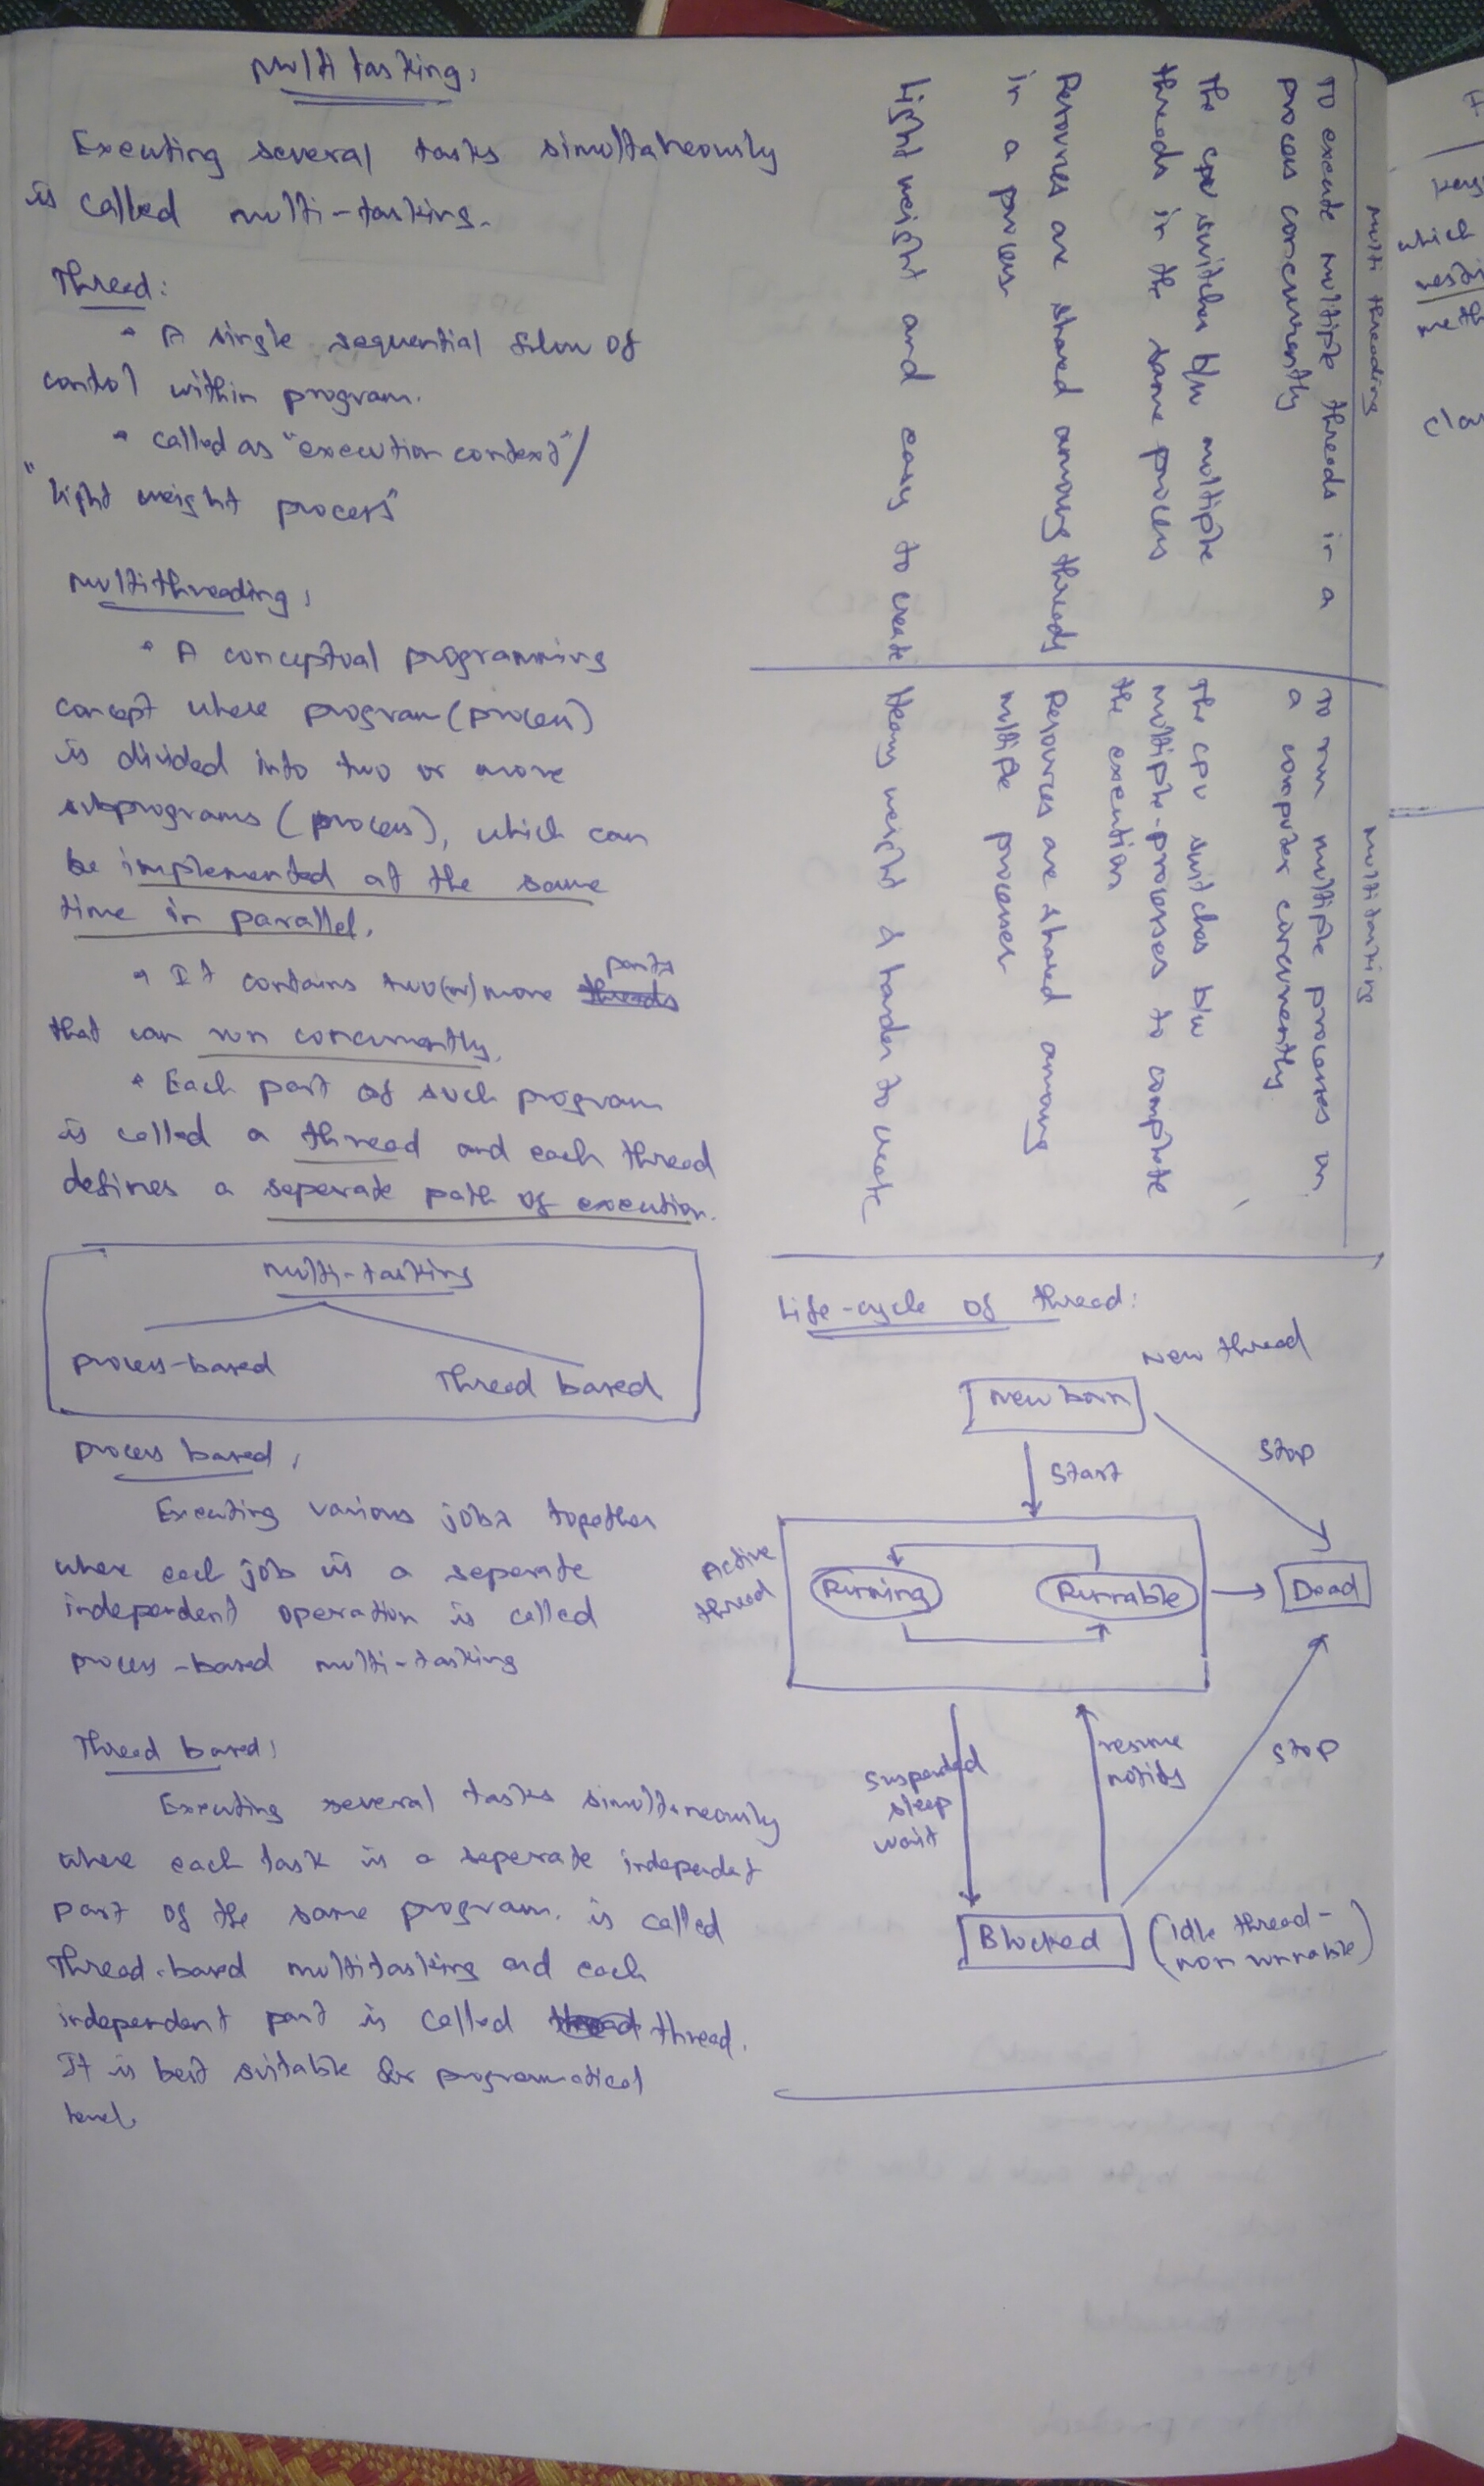 Multi tasking:
Executing several tasks simultaneously
is called multi-tasking.
Thread:
• A single sequential flow of
control within program.
• called as "execution context"/
"light weight process"
Multithreading:
• A conceptual programming
concept where program (process)
is divided into two or more
subprograms (process), which can
be implemented at the same
time in parallel.
• It contains two(or) more parts
that can run concurrently.
• Each part of such program
is called a thread and each thread
defines a seperate path of execution.
multi-tasking
process-based
Thread based
process based:
Executing various jobs together
where each job is a seperate
independent operation is called
process-based multi-tasking
Thread based:
Executing several tasks simultaneously
where each task is a seperate independet
part of the same program. is called
Thread-based multitasking and each
independent part is called thread.
It is best suitable for programatical
level.
multi threading
To execute multiple threads in a
process concurrently
The cpu switches b/w multiple
threads in the same process
Resources are shared among threads
in a process
Light weight and easy to create
multi tasking
To run multiple processes on
a computer concurrently
The cpu switches b/w
multiple-processes to complete
the execution
Resources are shared among
multiple processes
Heavy weight & harder to create
Life-cycle of thread:
New thread
New born
Start
Stop
Active
thread
Running
Runnable
Dead
suspended
sleep
wait
resume
notify
Stop
Blocked
(idle thread-
non runnable)
which
clas